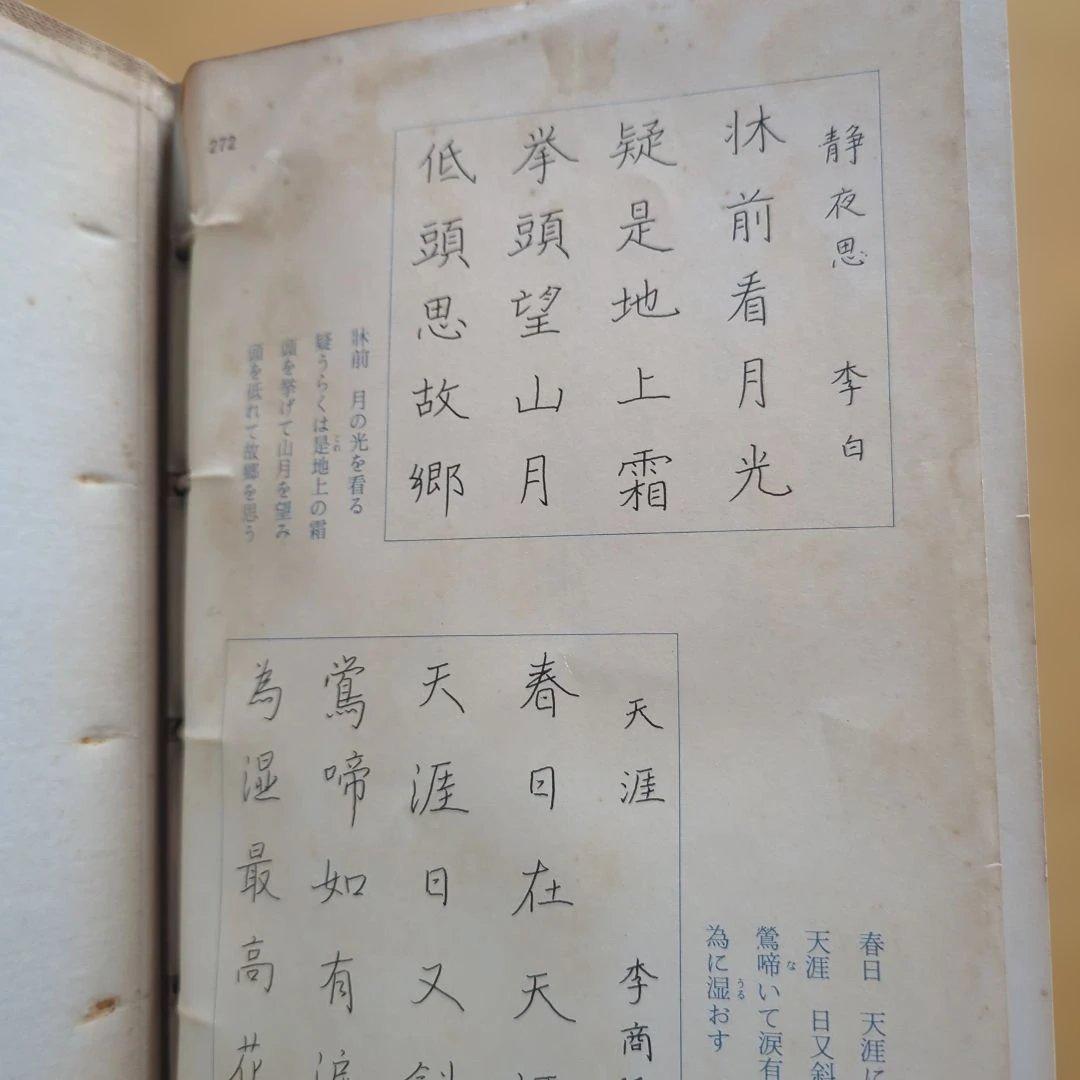 272
静夜思 李白
牀前看月光
疑是地上霜
挙頭望山月
低頭思故郷
牀前 月の光を看る
疑うらくは是地上の霜
これ
頭を挙げて山月を望み
頭を低れて故郷を思う
天涯 李商
春日在天
天涯日又斜
鶯啼如有涙
為湿最高花
春日 天涯に
天涯 日又斜
鶯啼いて涙有
な
為に湿おす
うる